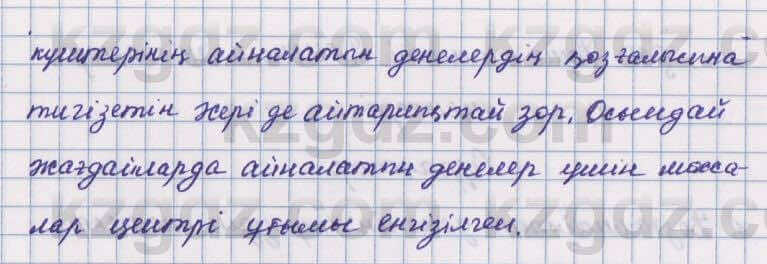 күштерінің айналатын денелердің қозғалысына
тигізетін әсері де айтарлықтай зор. Осындай
жағдайларда айналатын денелер үшін масса-
лар центрі ұғымы енгізілген.